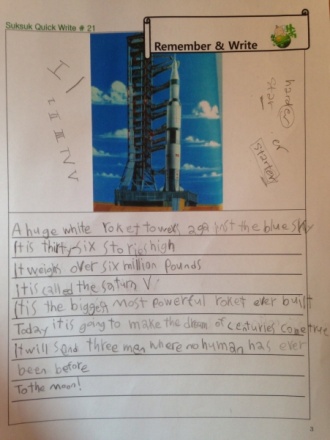 Suksuk Quick Write # 21
Remember & Write
I II III IV V
handed
star
or
started
A huge white roket towers against the blue sky
It is thirty six stories high
It weighs over six million pounds
It is called the saturn V.
It is the biggest most powerful roket ever built
Today it is going to make the dream of centuries come true
It will send three men where no human has ever
been before
To the moon!
3